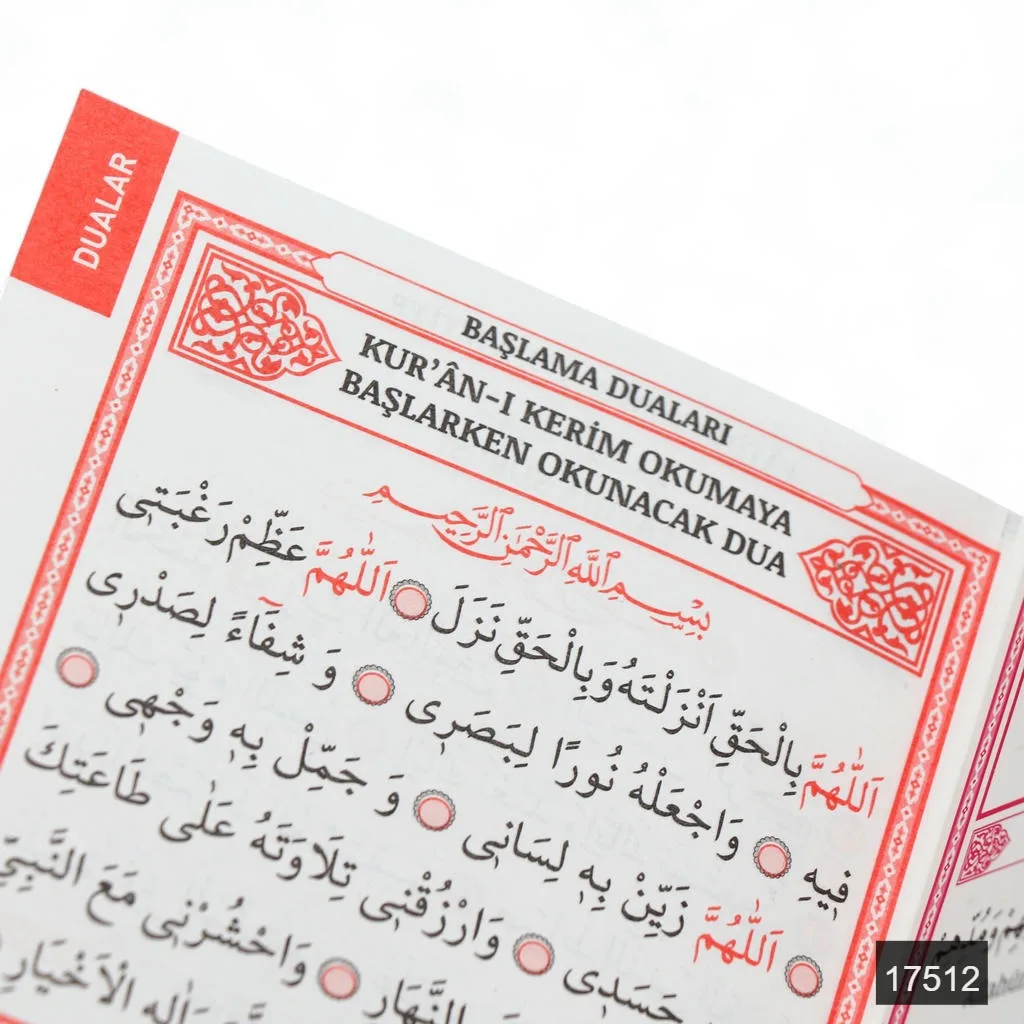 DUALAR
BAŞLAMA DUALARI
KUR’ÂN-I KERİM OKUMAYA
BAŞLARKEN OKUNACAK DUA
بِسْمِ اللّٰهِ الرَّحْمٰنِ الرَّحِيمِ
اَللّٰهُمَّ بِالْحَقِّ اَنْزَلْتَهُ وَبِالْحَقِّ نَزَلَ اَللّٰهُمَّ عَظِّمْ رَغْبَتٖى
فٖيهِ وَاجْعَلْهُ نُورًا لِبَصَرٖى وَ شِفَٓاءً لِصَدْرٖى
اَللّٰهُمَّ زَيِّنْ بِهٖ لِسَانٖى وَ جَمِّلْ بِهٖ وَجْهٖى
حَسَدٖى وَارْزُقْنٖى تِلَاوَتَهُ عَلٰى طَاعَتِكَ
النَّهَارِ وَاحْشُرْنٖى مَعَ النَّبِيِّ
وَاٰلِهِ الْاَخْيَارِ
17512